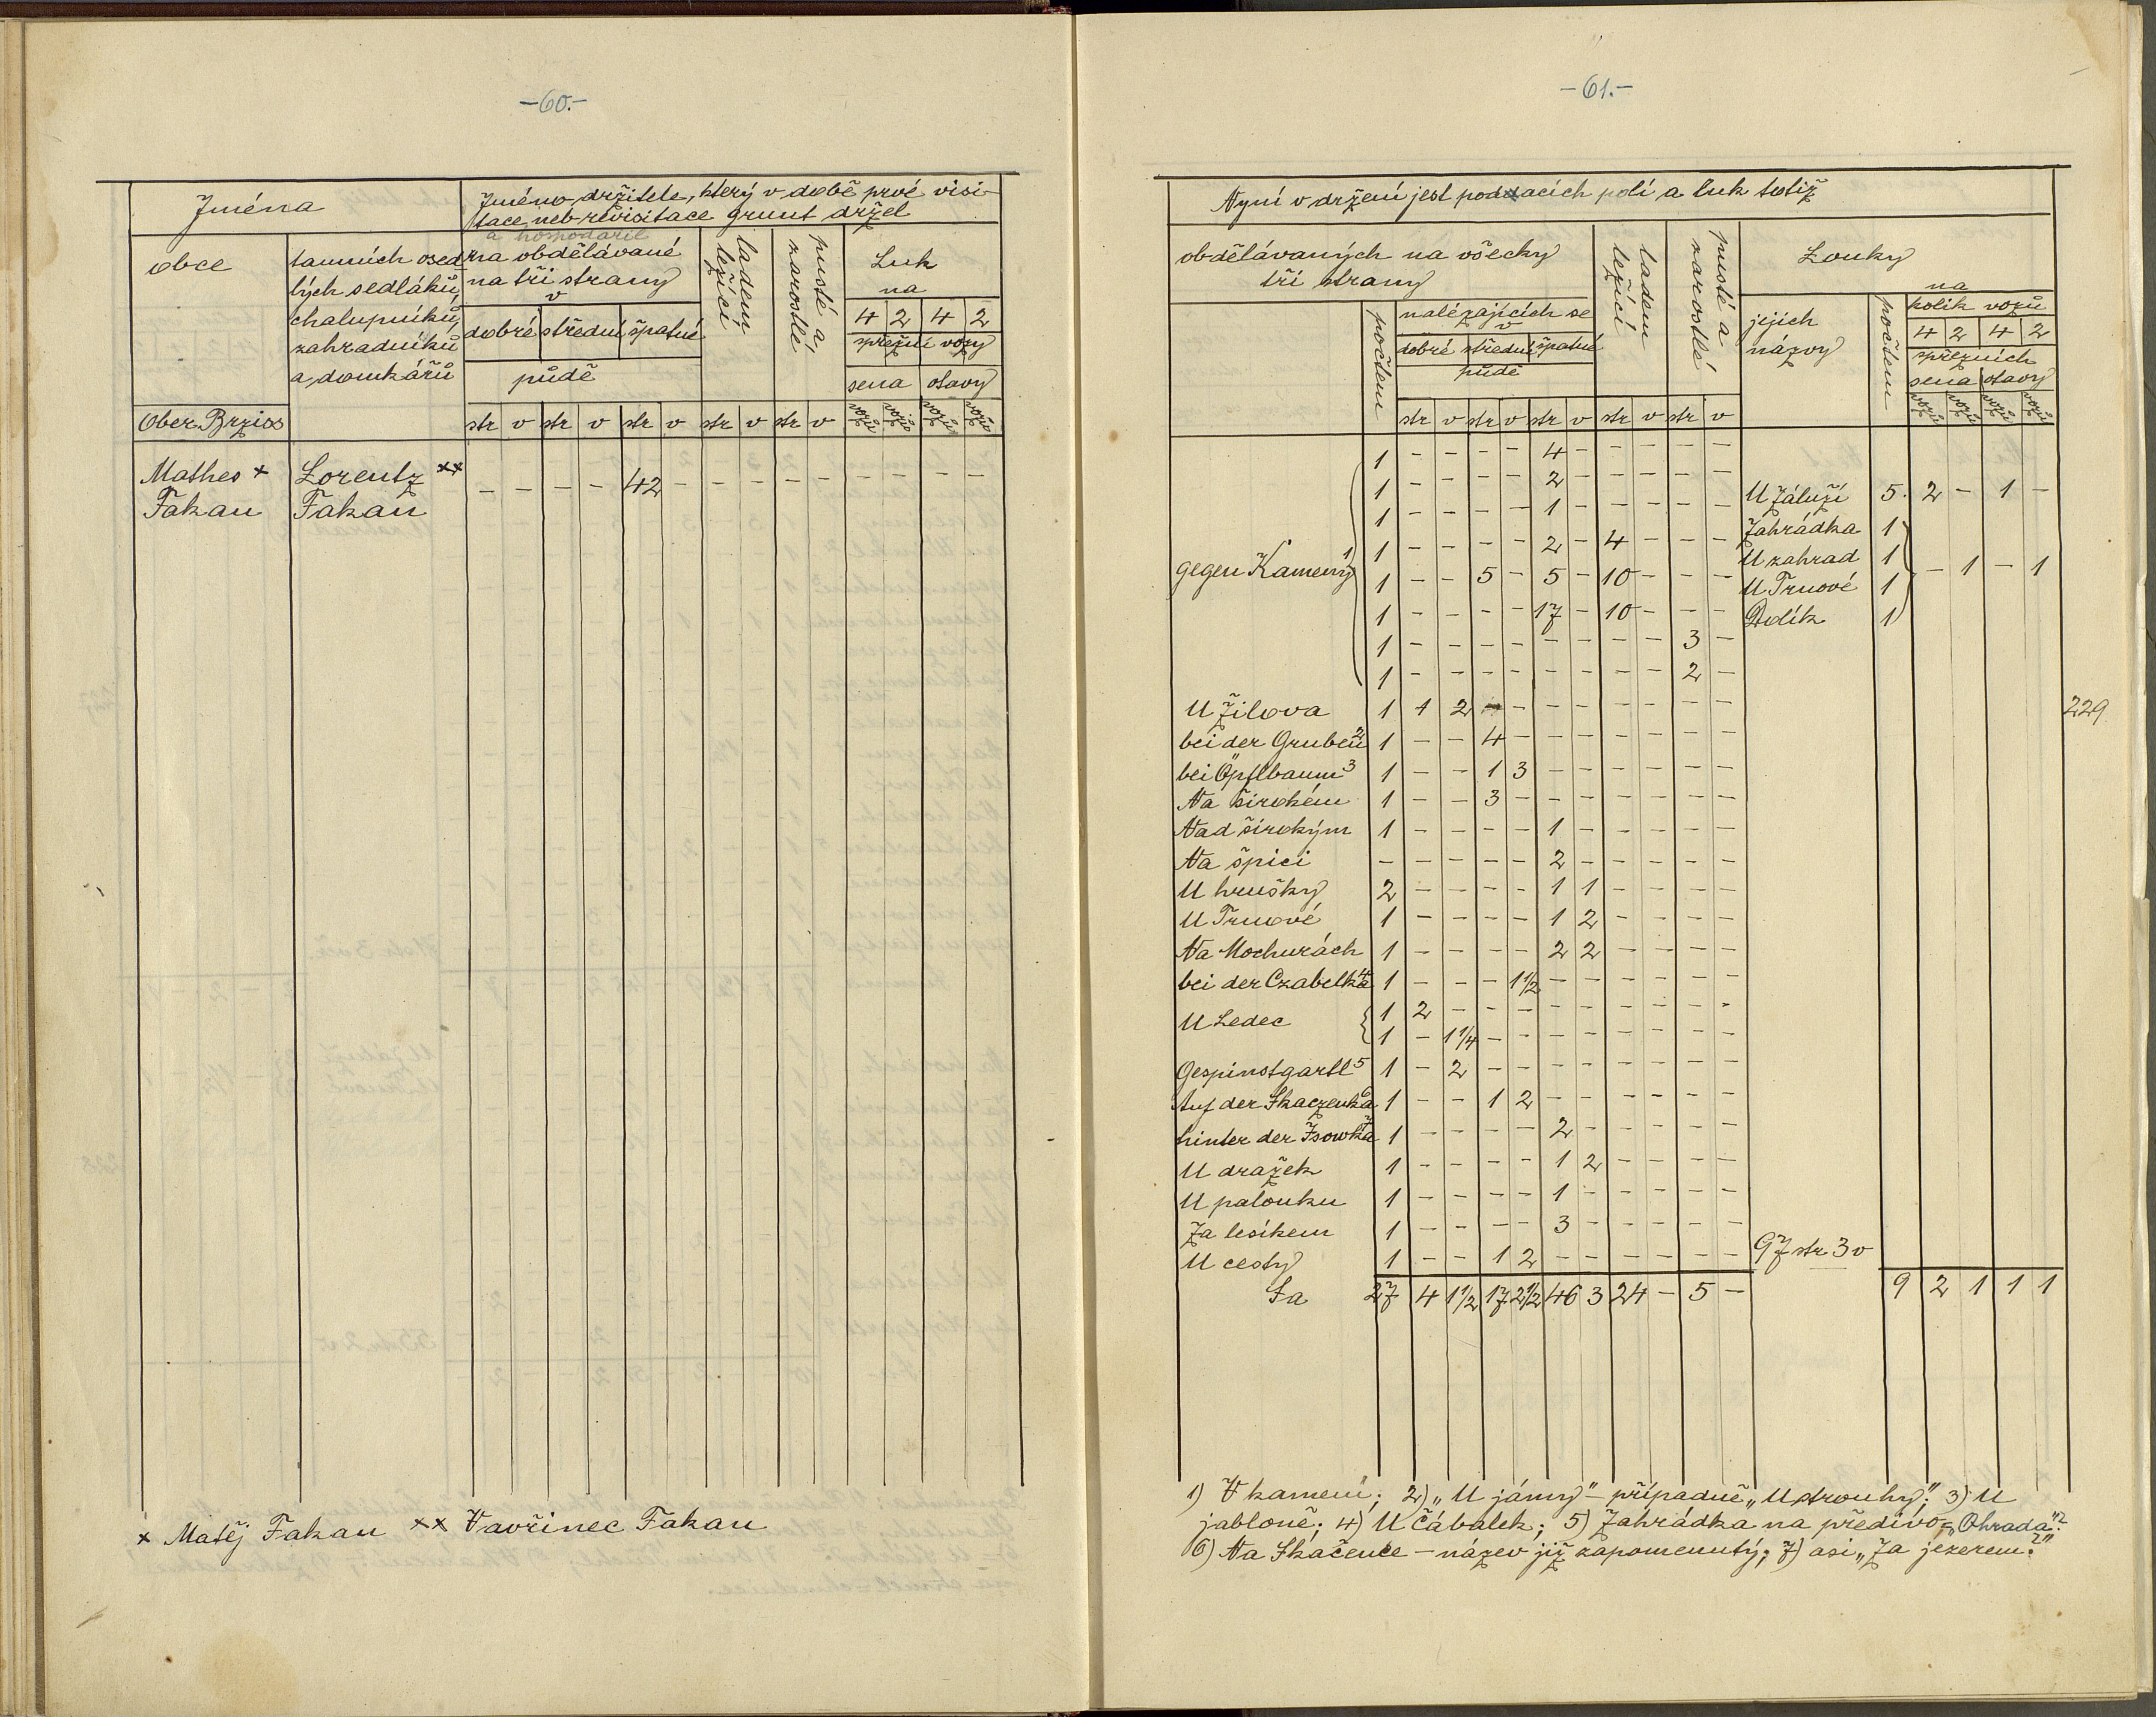 -60.-
Jména
Jméno držitele, který v době prvé visi-
tace neb revisitace grunt držel
a hospodařil
obce
tamních osed-
lých sedláků,
chalupníků,
zahradníků
a domkářů
na obdělávané
na tři strany
v
dobré střední špatné
půdě
ladem ležící
pusté a zarostlé
Luk
na
4 2 4 2
spřežní vozy
sena otavy
Ober Brzios
str v str v str v str v str v vozů vozů vozů vozů
Mathes × Lorentz ××
Fakan Fakan
- - - - 42 - - - - - - - - -
× Matěj Fakan ×× Vavřinec Fakan
-61.-
Nyní v držení jest poddacích polí a luk totiž
obdělávaných na všecky
tři strany
počtem
nalézajících se
v
dobré střední špatné
půdě
ladem ležící
pusté a zarostlé
Louky
jejich
názvy
počtem
na
kolik vozů
4 2 4 2
spřežních
sena otavy
str v str v str v str v str v vozů vozů vozů vozů
1 - - - - 4 - - - - -
1 - - - - 2 - - - - - U Záluží 5. 2 - 1 -
1 - - - - 1 - - - - - Zahrádka 1
gegen Kameny 1 1 - - - - 2 - 4 - - - U zahrad 1 - 1 - 1
1 - - 5 - 5 - 10 - - - U Trnové 1
1 - - - - 17 - 10 - - - Dolík 1
1 - - - - - - - - 3 -
1 - - - - - - - - 2 -
U Žilova 1 1 2 - - - - - - - - 229
bei der Gruben 2 1 - - 4 - - - - - - -
bei Öpflbaum 3 1 - - 1 3 - - - - - -
Na širokém 1 - - 3 - - - - - - -
Nad širokým 1 - - - - 1 - - - - -
Na špici - - - - - 2 - - - - -
U hrušky 2 - - - - 1 1 - - - -
U Trnové 1 - - - - 1 2 - - - -
Na Mochurách 1 - - - - 2 2 - - - -
bei der Czabelka 4 1 - - - 1½ - - - - - -
U Ledec 1 2 - - - - - - - - -
1 - 1¼ - - - - - - - -
Gespinstgartl 5 1 - 2 - - - - - - - -
Auf der Skaczenka 6 1 - - 1 2 - - - - - -
hinter der Jsowka 7 1 - - - - 2 - - - - -
U dražek 1 - - - - 1 2 - - - -
U palouku 1 - - - - 1 - - - - -
Za lesíkem 1 - - - - 3 - - - - -
U cesty 1 - - 1 2 - - - - - - 97 str 3 v
Sa 27 4 1½ 17 2½ 46 3 24 - 5 - 9 2 1 1 1
1) V kamení; 2) „U jámy" - případně „U strouhy"; 3) U
jabloně; 4) U Čábalek; 5) Zahrádka na předivo = „Ohrada"?
6) Na Skačence - název již zapomenutý; 7) asi „Za jezerem?"